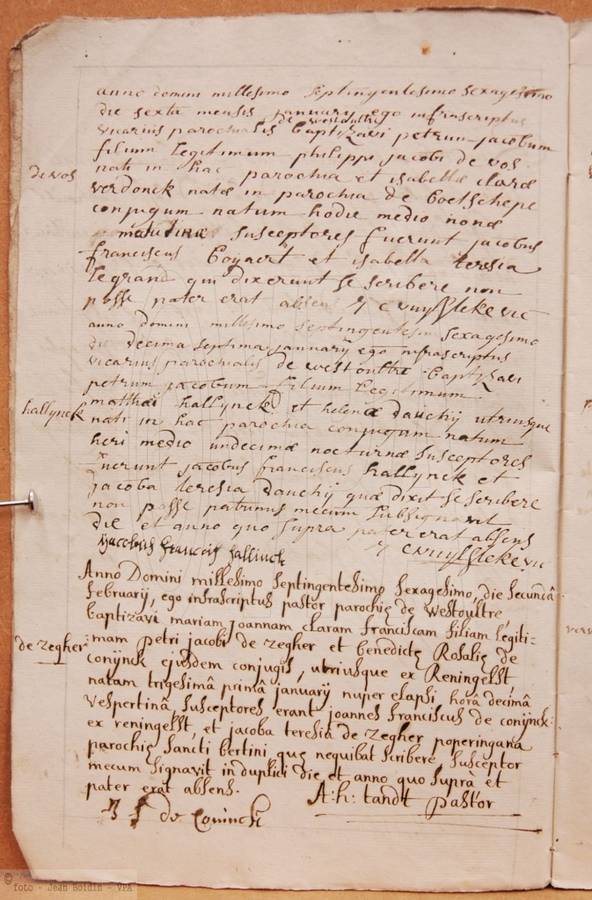 anno domini millesimo septingentesimo sexagesimo
die sexta mensis january ego infrascriptus
vicarius parochialis de westoultre baptizavi petrum jacobum
filium legitimum philippi jacobi de vos
de vos
nati in hac parochia et isabellæ claræ
verdonck natæ in parochia de boetschepe
conjugum natum hodie medio nonæ
matutinæ susceptores fuerunt jacobus
franciscus boyaert et isabella teresia
legrand qui dixerunt se scribere non
posse pater erat absens
anno domini millesimo septingentesimo sexagesimo
die decima septima january ego infrascriptus
vicarius parochialis de westoultre baptizavi
petrum jacobum filium legitimum
hallynck
matthæi hallynck et helenæ dauchy utriusque
nati in hac parochia conjugum natum
heri medio undecimæ nocturnæ susceptores
fuerunt jacobus franciscus hallynck et
jacoba teresia dauchy quæ dixit se scribere
non posse patrinus mecum subsignavit
die et anno quo supra pater erat absens
jacobus francois hallinck
Anno Domini millesimo septingentesimo sexagesimo, die secundâ
februarij, ego infrascriptus pastor parochię de westoultre
baptizavi mariam joannam claram franciscam filiam legiti-
de zegher
mam petri jacobi de zegher et benedictę Rosalię de
coninck ejusdem conjugis, utriusque ex Reninghelst
natam trigesimâ primâ january nuper elapsi horâ decimâ
vespertinâ, susceptores erant joannes franciscus de coninck
ex reningelst, et jacoba teresia de zegher poperingana
parochię sancti bertini quę nequibat scribere susceptor
mecum signavit in duplici die et anno quo suprà et
pater erat absens.
A: h: tandt pastor
J f de Coninck
© foto - Jean Boidin - VPA